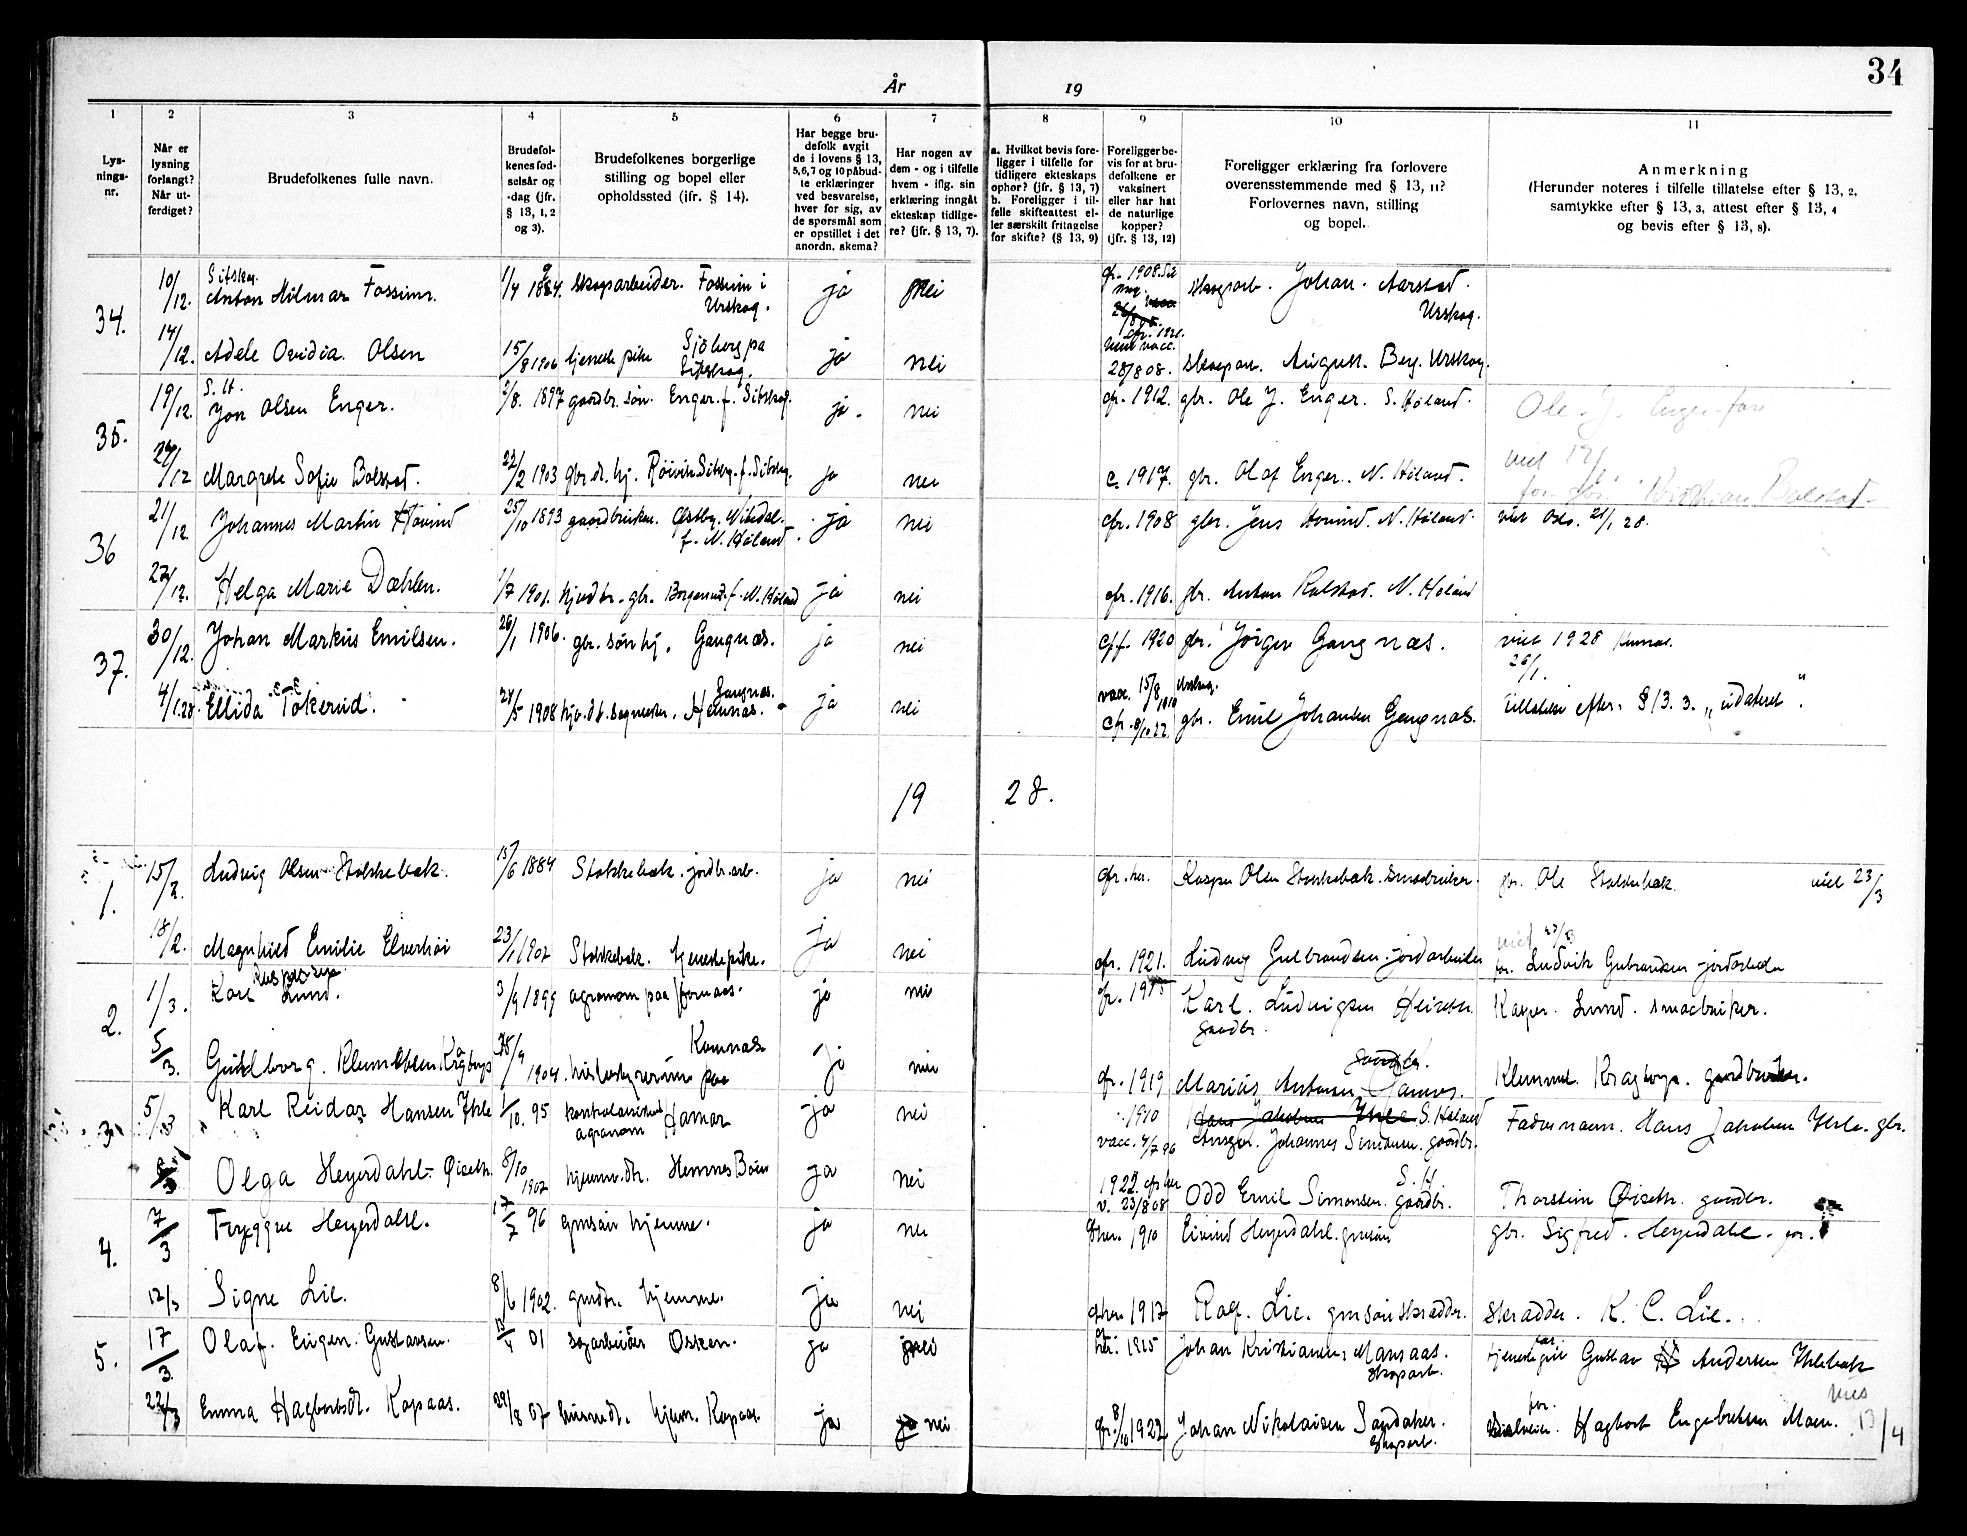 34
År 19
1 2 3 4 5 6 7 8 9 10 11
Lys-
nings-
nr.
Når er
lysning
forlangt?
Når ut-
ferdiget?
Brudefolkenes fulle navn.
Brudefol-
kenes fød-
selsår og
-dag (jfr.
§ 13, 1, 2
og 3).
Brudefolkenes borgerlige
stilling og bopel eller
opholdssted (ifr. § 14).
Har begge bru-
defolk avgit
de i lovens § 13,
5,6,7 og 10 påbud-
te erklæringer
ved besvarelse,
hver for sig, av
de spørsmål som
er opstillet i det
anordn. skema?
Har nogen av
dem - og i tilfelle
hvem - iflg. sin
erklæring inngåt
ekteskap tidlige-
re? (jfr. § 13, 7).
a. Hvilket bevis fore-
ligger i tilfelle for
tidligere ekteskaps
ophør? (jfr. § 13, 7)
b. Foreligger i til-
felle skifteattest el-
ler særskilt fritagelse
for skifte? (§ 13, 9)
Foreligger be-
vis for at bru-
defolkene er
vaksinert
eller har hat
de naturlige
kopper?
(jfr. § 13, 12)
Foreligger erklæring fra forlovere
overensstemmende med § 13, 11?
Forlovernes navn, stilling
og bopel.
Anmerkning
(Herunder noteres i tilfelle tillatelse efter § 13, 2,
samtykke efter § 13, 3, attest efter § 13, 4
og bevis efter § 13, 8).
34. 10/12. Sitskog. Anton Hilmar Fossum. 1884. skogsarbeider. Fossum i Urskog. ja nei 1908 skogsarb. Johan Aarstad. Urskog.
14/12. Adele Ovidia Olsen 15/8 1906 tjenestepike Sjöberg pa Sitskog. ja nei 28/8 08. August Berg. Urskog.
35. 19/12. S. H. Jon Olsen Enger. /8. 1897 gaardbr. søn. Enger f. Sitskog. ja. nei cfr. 1912. gbr. Ole J. Enger. S. Høland. Ole J. Enger far
/12 Margrete Sofie Bolstad. 22/2 1903 ja nei c. 1917. gbr. Olaf Enger. N. Høland. viet Kristian Bolstad
36 21/12 Johannes Martin Hovind 25/10 1893 gaardbruker. Østby. f. N. Høland. ja nei cfr. 1908 gbr. Jens Hovind. N. Høland. viet Oslo. 21/1 28.
27/12. Helga Marie Dæhlen. 1/7 1901. N. Høland ja nei cfr. 1916. gbr. Anton Kolstad. N. Høland
37. 30/12. Johan Markus Emilsen. 26/1 1906. gbr. søn hj. Gangnæs. ja nei cfr. 1920 gbr. Jørgen Gangnæs. viet 1928 Hemnes. 26/1.
4/1.28. Ellida Tokerud. 24/5 1908 Gangnæs. Hemnæs. ja nei vacc. 15/8 1910 Urskog. cfr. 8/10 22. gbr. Emil Johansen Gangnæs. Tillatelse efter § 13. 3. „udateret".
19 28.
1. 15/2. Ludvig Olsen Stokkebæk. 15/6 1884 Stokkebæk. jordbr. arb. ja nei cfr. her. Kasper Olsen Stokkebæk. smaabruker. gbr. Ole Stokkebæk. viet 23/3
18/2. Magnhild Emilie Elverhøi 23/1 1907 Stokkebæk. tjenestepike. ja nei cfr. 1921. Ludvig Gulbrandsen. jordarbeider viet 23/3 for. Ludvik Gubrandsen jordarbeider
2. 1/3. Karl Kaspersen Lund. 3/9 1899 agronom paa ja nei cfr. 1915 Karl Ludvigsen gaardbr. Kasper Lund. smaabruker.
5/3. Guldborg Klemetsen Kragtorp /9 1904. Komnæs paa ja nei cfr. 1919 Marius Antonsen gaardbr. Klemmet Kragtorp. gaardbruker.
3. 5/3 Karl Reidar Hansen Ihle 1/10. 95 kontrolassistent agronom Hamar ja nei 1910 vacc. 4/7 96 Hans Jakobsen Ihle S. Høland Johannes Simensen. gaardbr. Fadernavn. Hans Jakobsen Ihle. gbr.
/3 Olga Heyerdahl Øiseth. 8/10 1907 hjemme. dtr. Hemnes Böen ja nei 1922. cfr. her v. 23/8 08 Odd Emil Simonsen. S. H. gaardbr. Thorstein Øiseth. gaardbr.
4. 7/3 Trygve Heyerdahl. 17/7 96 gmsøn hjemme. ja nei her. 1910 Eivind Heyerdahl. gmsøn gbr. Sigfred Heyerdahl. for.
12/3 Signe Lie. 8/6 1902. hjemme. ja nei her 1917 Rolf Lie. skrædder. Skrædder. K. C. Lie.
5. 17/3 Olaf Eugen Gustavsen. 01 sagarbeider Ossen. ja nei 1915 Johan Kristiansen Monsaas. skogsarb. far. Gustav Andersen Ihlebæk
22/3 Emma Hagbartsdt. Kopaas. 29/8 07 hjem. Kopaas. ja nei cfr. 8/10 1922 Johan Nikolaisen Sandaker. skogsarb. for. Hagbart Engebretsen Moen. viet 13/4